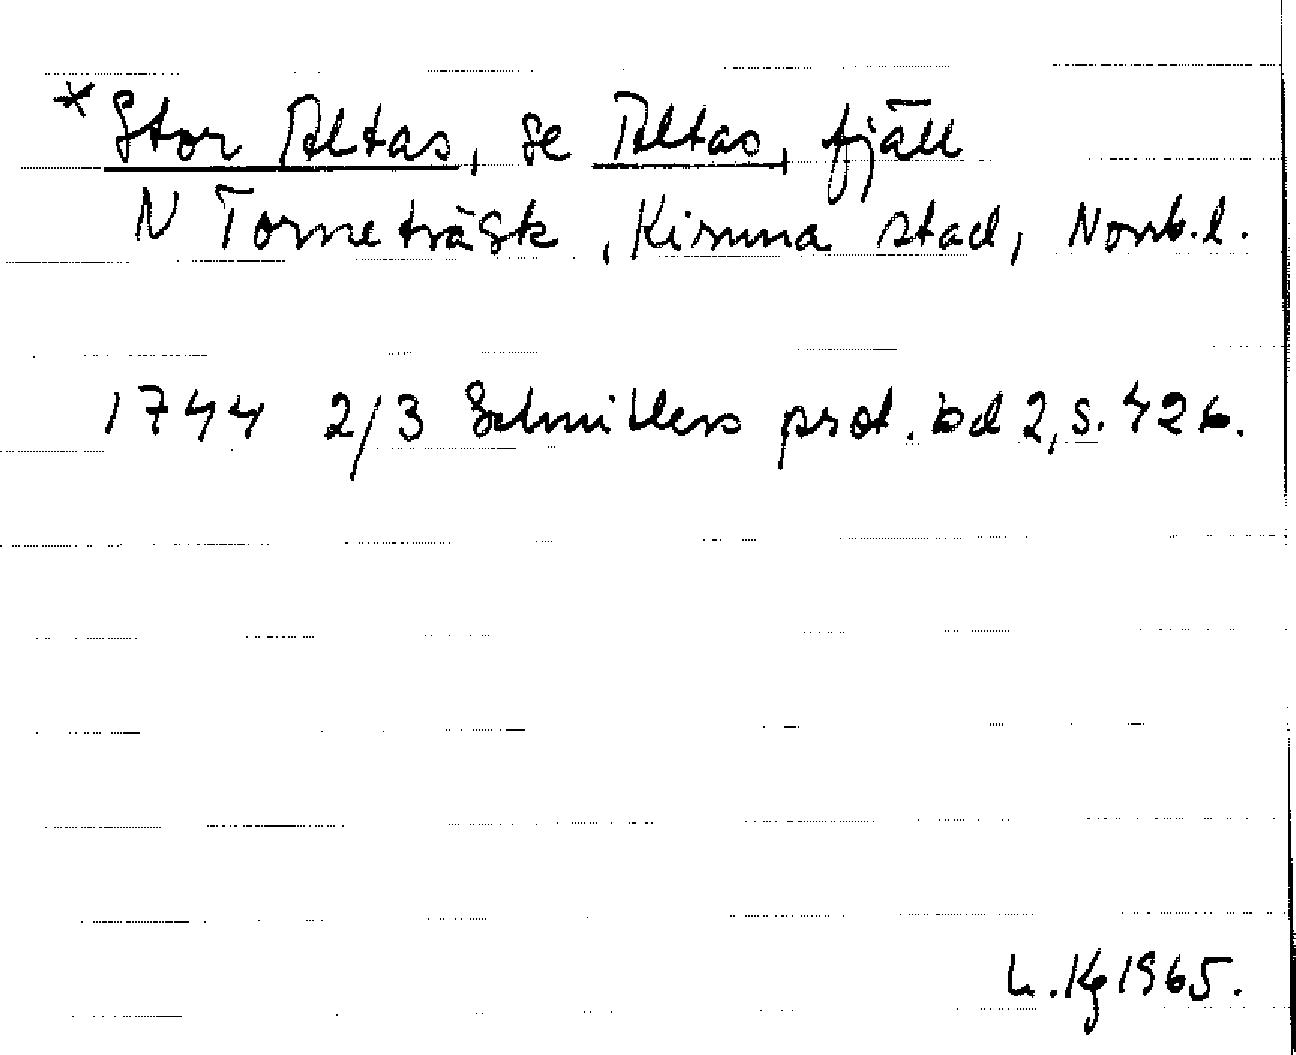 * Stor Altas, se Altas, fjäll
N Torneträsk, Kiruna stad, Norrb.l.
1744 2/3 Schnitlers prot. bd 2, s. 426.
L. Kg 1965.